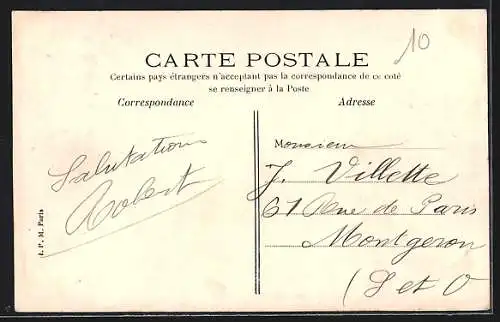 10
CARTE POSTALE
Certains pays étrangers n'acceptant pas la correspondance de ce coté
se renseigner à la Poste
Correspondance
Adresse
Salutations
Robert
Monsieur
J. Villette
61 Rue de Paris
Montgeron
(S et O
A. P. M. Paris